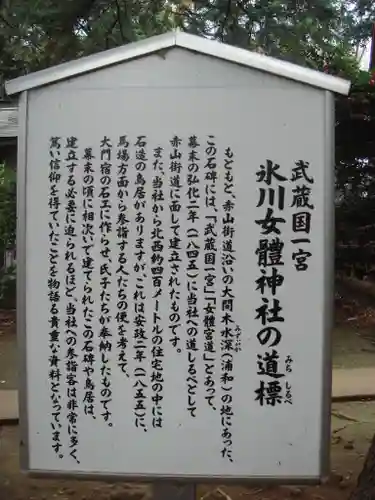 武蔵国一宮
氷川女體神社の道標
みち しるべ
もともと、赤山街道沿いの大間木水深(浦和)の地にあった、
みずぶか
この石碑には、「武蔵国一宮」「女體宮道」とあって、
幕末の弘化二年(一八四五)に当神社への道しるべとして
赤山街道に面して建立されたものです。
また、当社から北西約四百メートルの住宅地の中には
石造の鳥居がありますが、これは安政二年(一八五五)に、
馬場方面から参詣する人たちの便を考えて、
大門宿の石工に作らせ、氏子たちが奉納したものです。
幕末の頃に相次いで建てられたこの石碑や鳥居は、
建立する必要に迫られるほど、当社への参詣客は非常に多く、
篤い信仰を得ていたことを物語る貴重な資料となっています。